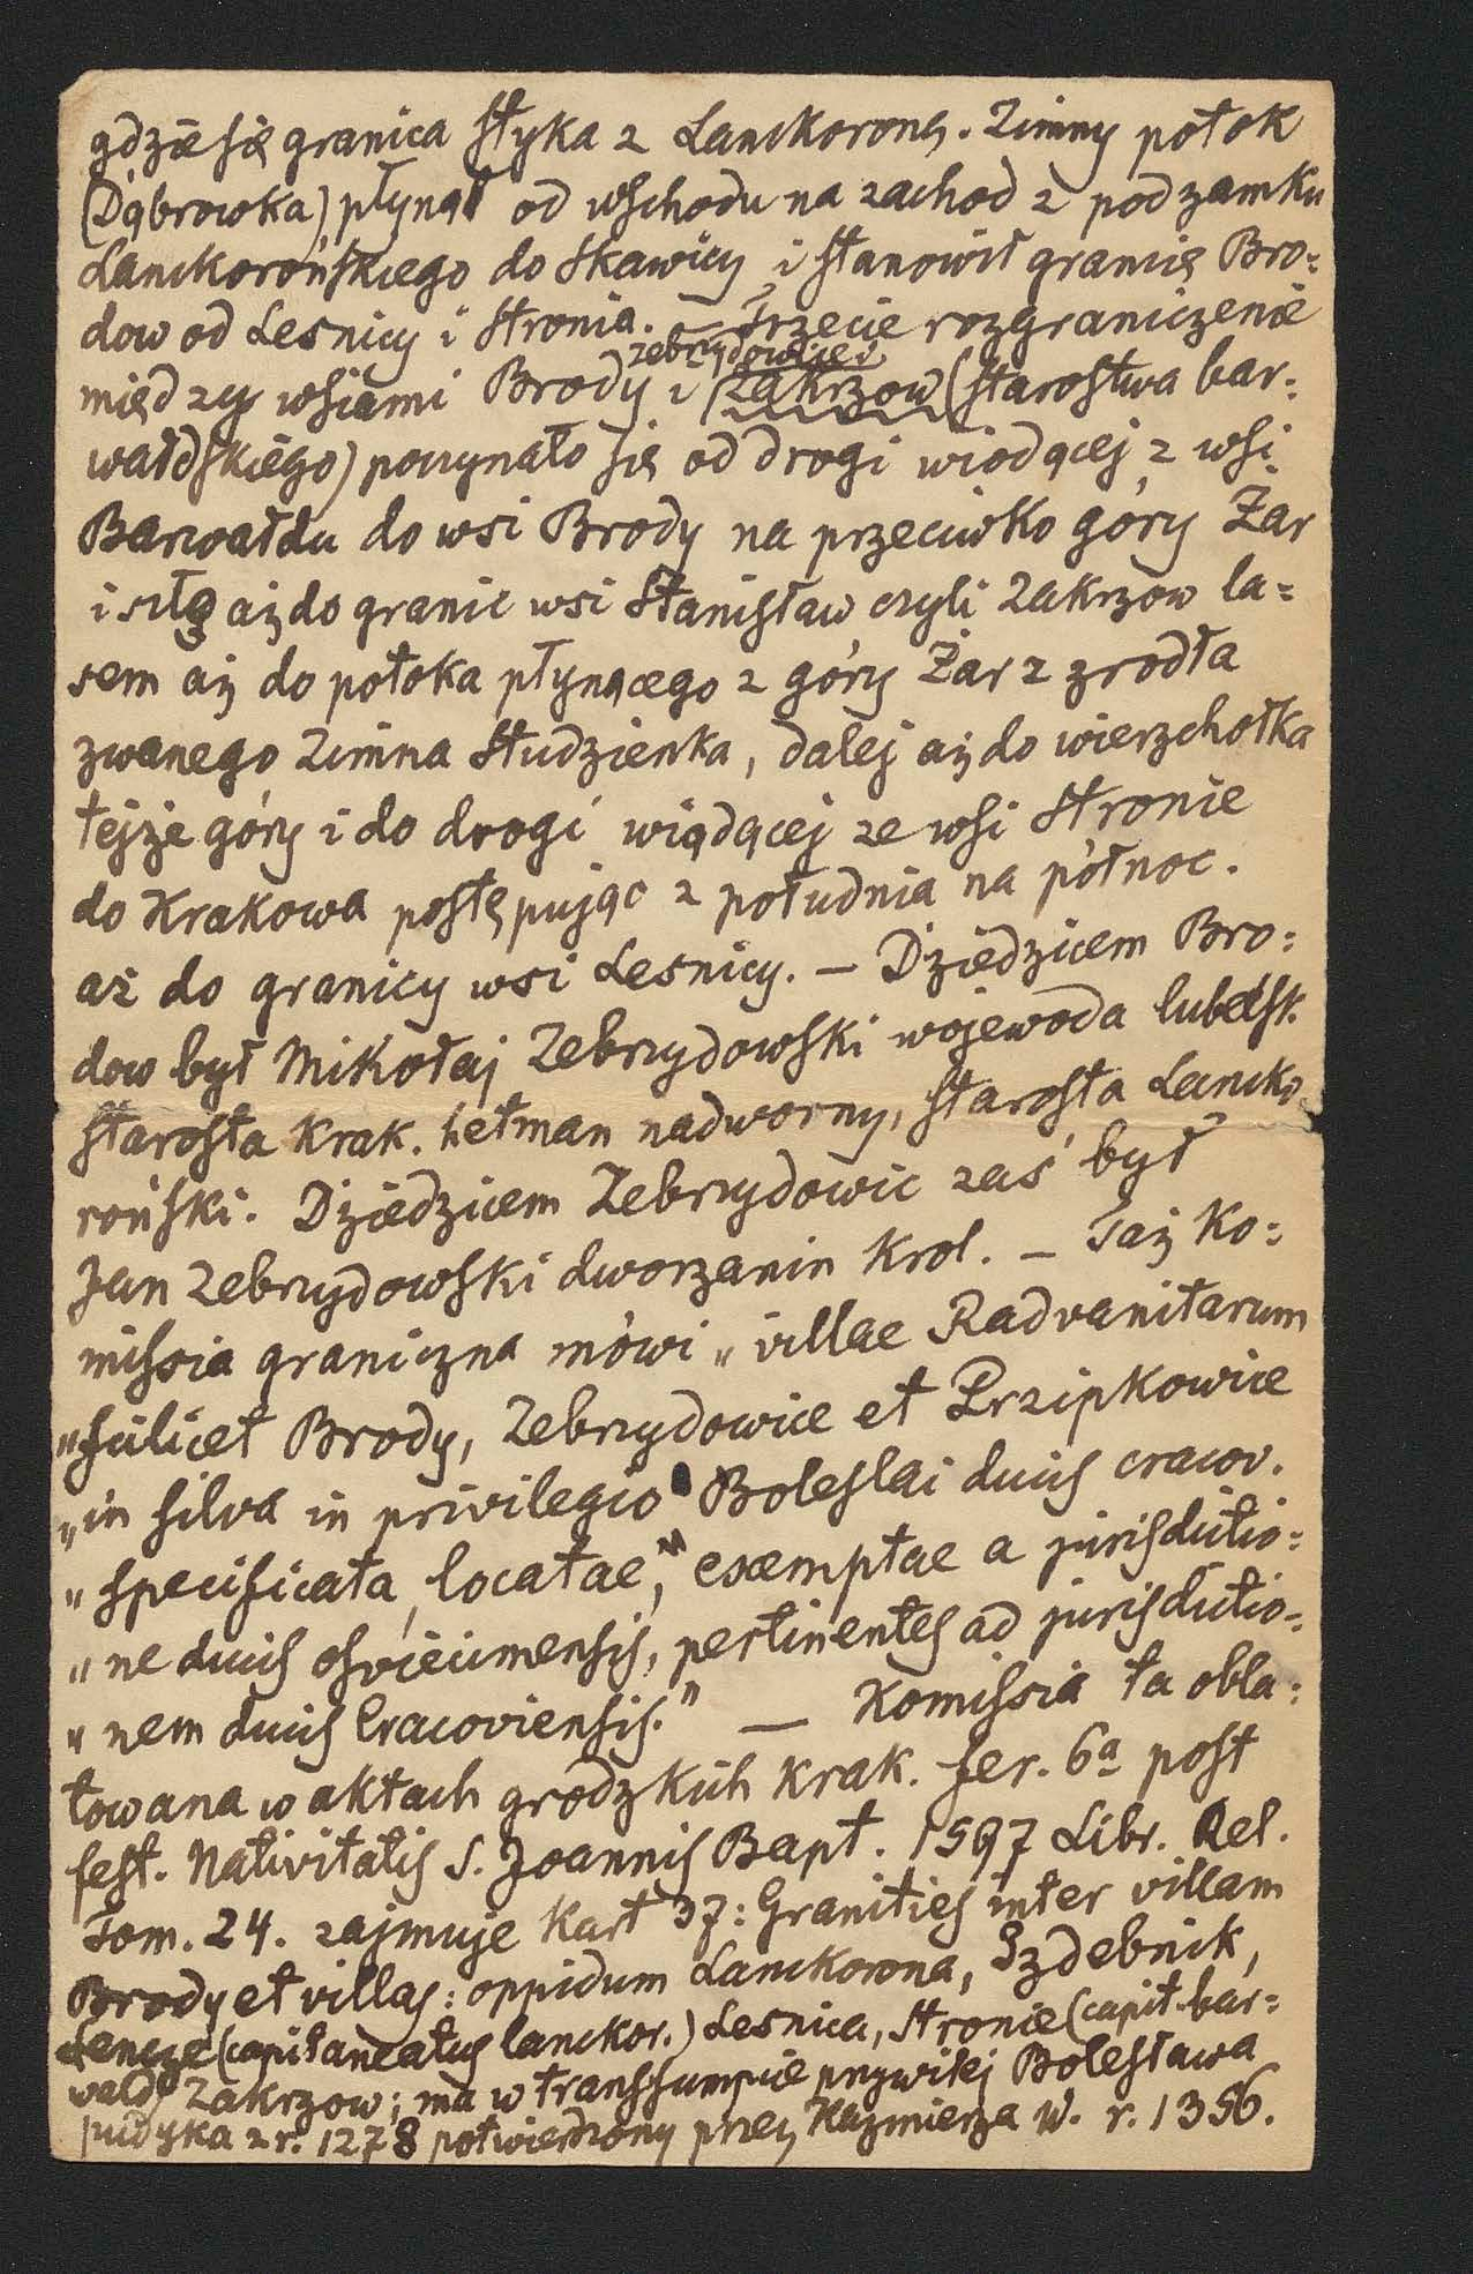 gdzie się granica styka z Lanckoroną. Zimny potok
(Dąbrowka) płynął od wschodu na zachod z pod zamku
Lanckorońskiego do Skawicy i stanowił granicę Bro=
dow od Lesnicy i Stronia. – Trzecie rozgraniczenie
zebrzydowice i
między wsiami Brody i Zakrzow (starostwa bar=
wałdskiego) poczynało się od drogi wiodącej z wsi
Barwałdu do wsi Brody na przeciwko góry Żar
i szło aż do granic wsi Stanisław czyli Zakrzow la=
sem aż do potoka płynącego z góry Żar z zrodła
zwanego Zimna Studzienka, dalej aż do wierzchołka
tejże góry i do drogi wiądącej ze wsi Stronie
do Krakowa postępując z południa na północ.
aż do granicy wsi Lesnicy. – Dziedzicem Bro=
dow był Mikołaj Zebrzydowski wojewoda lubelsk.
starosta Krak. hetman nadworny, starosta Lancko
roński. Dziedzicem Zebrzydowic zaś był
Jan Zebrzydowski dworzanin Krol. – Taż Ko=
missia graniczna mówi „villae Radvanitarum
„scilicet Brody, Zebrzydowice et Przipkowice
„in silva in privilegio Boleslai ducis cracov.
„specificata, locatae," exemptae a jurisdictio=
„ne ducis osvieciemensis, pertinentes ad jurisdictio=
„nem ducis Cracoviensis." — Komissia ta obla=
towana w aktach grodzkich Krak. fer. 6a post
fest. Nativitatis S. Joannis Bapt. 1597 Libr. Rel.
Tom. 24. zajmuje Kart 37: Granities inter villam
Brody et villas: oppidum Lanckorona, Izdebnik,
Lencze (capitaneatus lanckor.) Lesnica, Stronie (capit. bar=
wald) Zakrzow; ma w transsumpcie przywilej Bolesława
pudyka z r. 1278 potwierdzony przez Kazmierza W. r. 1356.